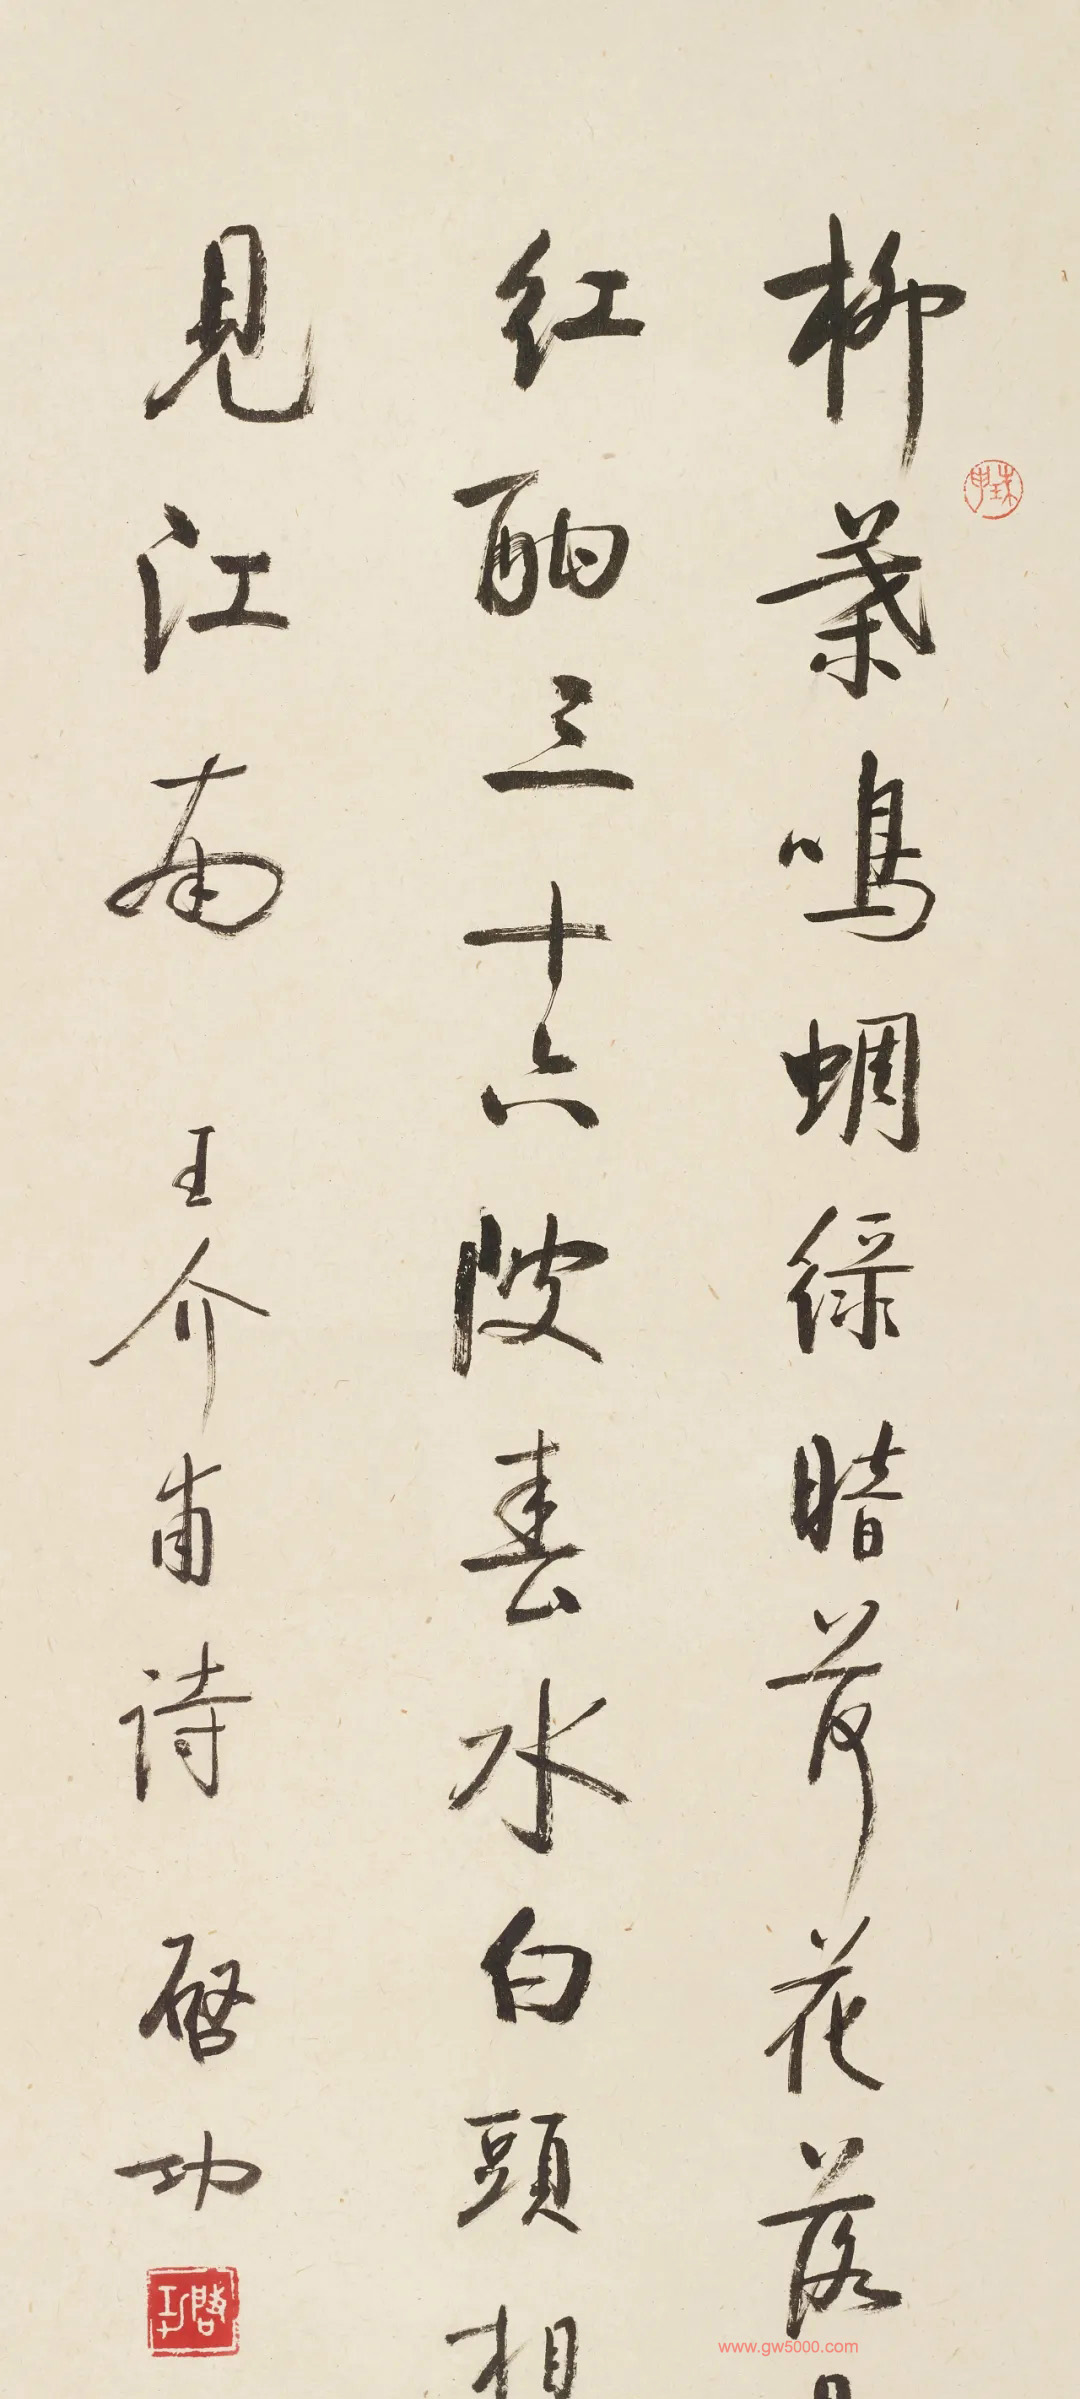 珠申
柳葉鳴蜩綠暗荷花落
紅酣三十六陂春水白頭相
見江南 王介甫詩 啓功
啓功
www.gw5000.com